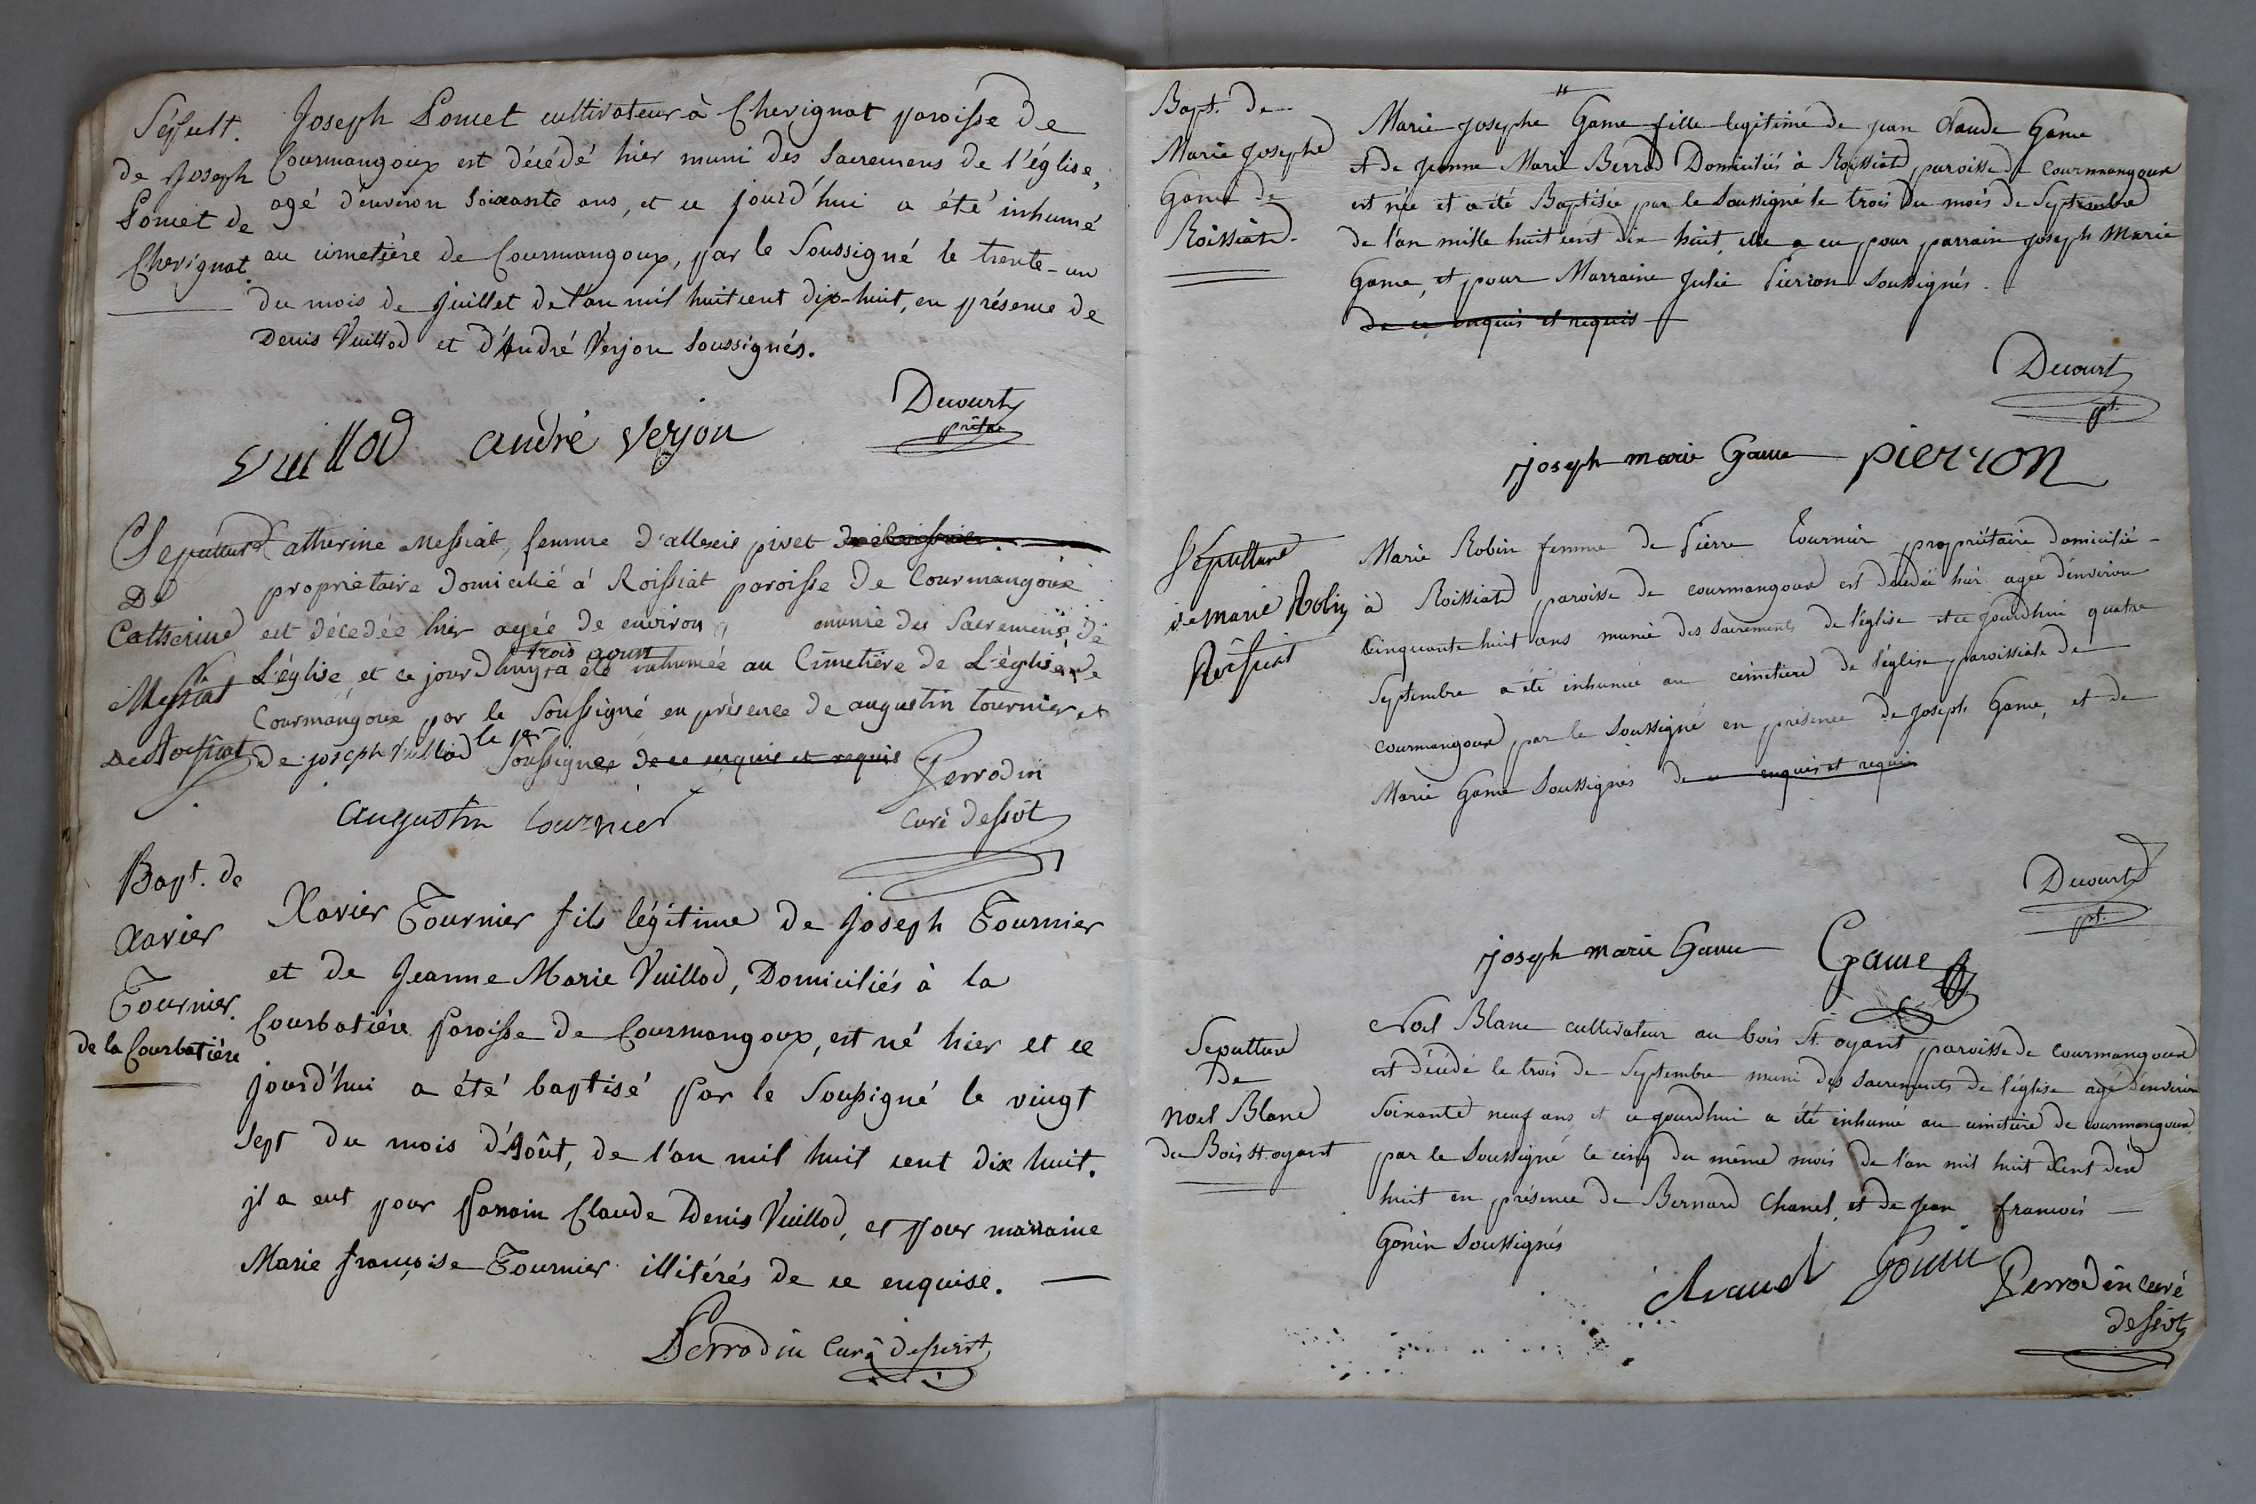 Sépult.
de Joseph
Pomet de
Chevignat.
Joseph Pomet cultivateur à Chevignat paroisse de
Courmangoux est décédé hier muni des Sacremens de l'église,
agé d'environ soixante ans, et ce jourd'hui a été inhumé
au cimetière de Courmangoux, par le Soussigné le trente-un
du mois de juillet de l'an mil huit cent dix-huit, en présence de
Denis Vuillod et d'André Verjon soussignés.
Decourt
prêtre
Vuillod andré verjon
Sepulture
De
Catherine
Messiat
De Roissiat
Catherine Messiat, femme d'allexis pivet
propriétaire domicilié à Roissiat paroisse de Courmangoux
est décedée hier agée de environ munie des Sacremens de
trois aoust
L'église, et ce jourdhuy a été inhumée au Cimetière de L'église de
Courmangoux par le Soussigné en présence de augustin tournier et
de joseph Vuillod le 1er Soussignés de ce enquis et requis
Perrodin
Curé dessvt
augustin tournier
Bapt. de
Xavier
Tournier.
de la Courbatière
Xavier Tournier fils légitime de Joseph Tournier
et de Jeanne Marie Vuillod, Domiciliés à la
Courbatière Paroisse de Courmangoux, est né hier et ce
jourd'hui a été baptisé Par le Soussigné le vingt
Sept du mois d'Août, de l'an mil huit cent dix huit.
jl a eut pour Parrain Claude Denis Vuillod, et pour marraine
Marie françoise Tournier illitérés de ce enquise.
Perrodin Curé desservt
Bapt. de
Marie Josephe
Game de
Roissiat.
Marie Josephe Game fille legitime de jean Claude Game
et de jeanne Marie Berrod Domiciliés à Roissiat, paroisse de courmangoux
est née et a été Baptisée par le Soussigné le trois du mois de Septembre
de l'an mille huit cent dix huit, elle a eu pour parrain joseph Marie
Game, et pour Marraine Julie Pierron Soussignés.
de ce enquis et requis
Decourt
pt.
joseph marie Game pierron
Sépulture
de Marie Robin
Roissiat
Marie Robin femme de Pierre Tournier propriétaire domicilié
à Roissiat paroisse de courmangoux est décedée hier agée d'environ
Cinquante huit ans munie des sacrements de l'église et ce jourdhui quatre
Septembre a été inhumée au cimetiere de l'église paroissiale de
courmangoux par le Soussigné en présence de Joseph Game, et de
Marie Game Soussignés de ce enquis et requis
Decourt
pt.
joseph marie Game Game
Sepulture
De
Noel Blanc
du Bois St. oyant
Noel Blanc cultivateur au bois St. oyant paroisse de courmangoux
est décédé le trois de Septembre muni des sacrements de l'église agé d'environ
soixante neuf ans et ce jourdhui a été inhumé au cimetiere de courmangoux
par le Soussigné le cinq du même mois de l'an mil huit cent dix
huit en présence de Bernard Chanel, et de jean francois
Gonin Soussignés
chanel Gonin Perrodin curé
dessvt